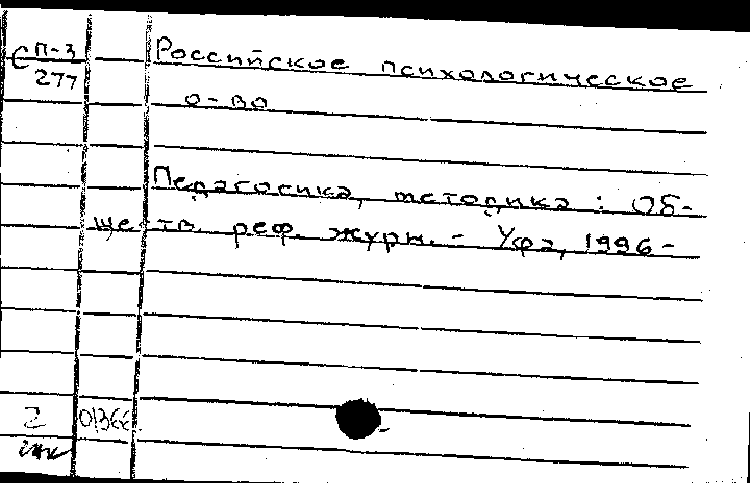 С П-3
277
Российское психологическое
о-во
Педагогика, методика : Об-
ществ. реф. журн. - Уфа, 1996-
2